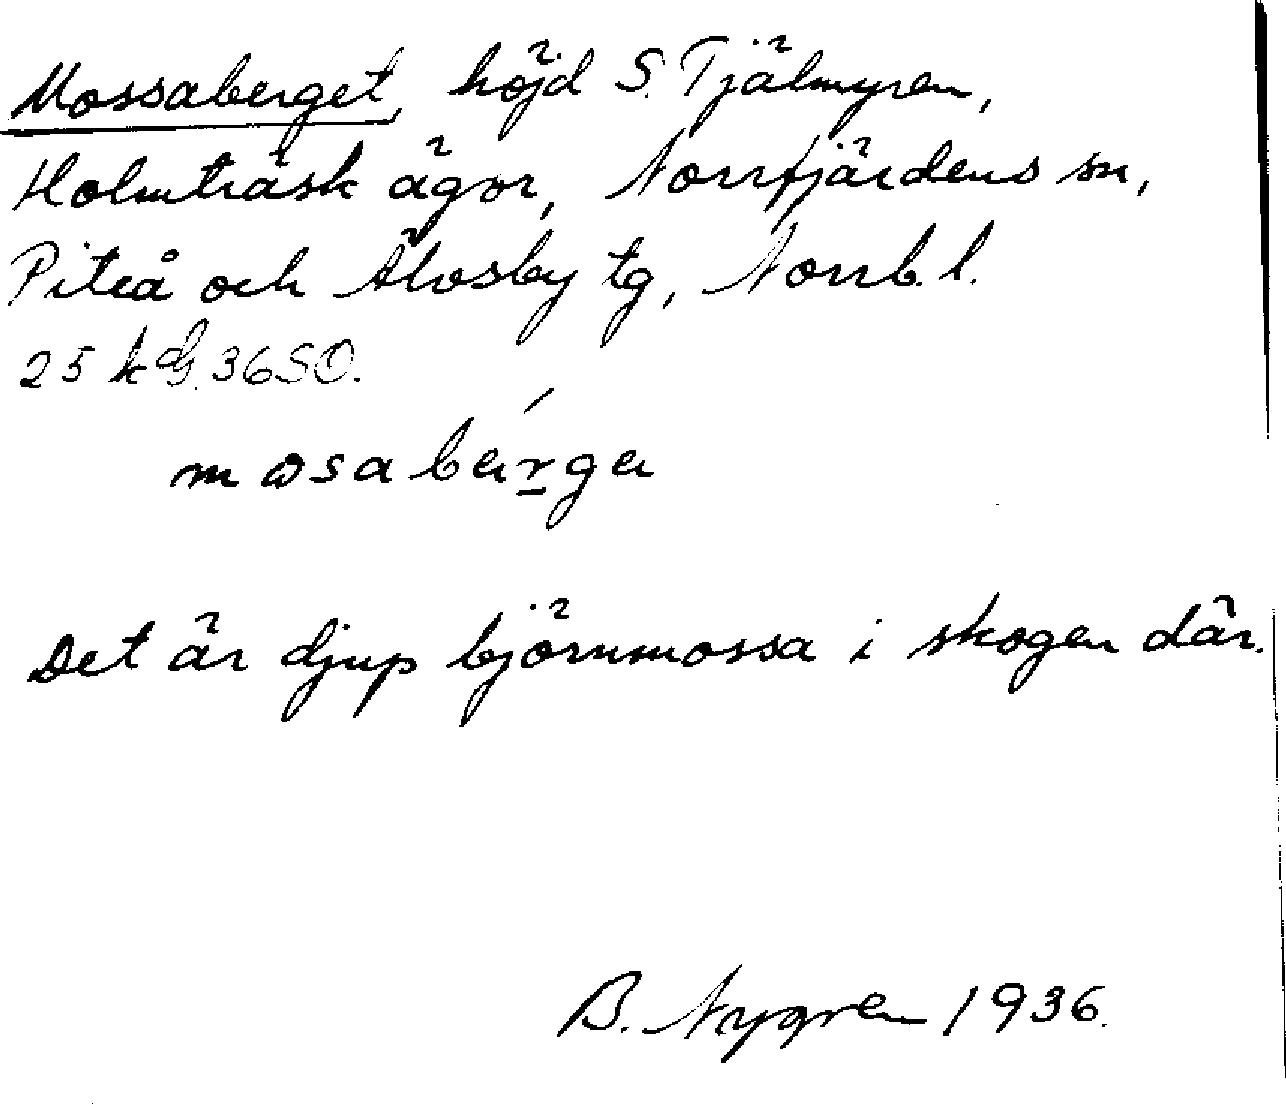 Mossaberget, höjd S. Tjälmyren,
Holmträsk ägor, Norrfjärdens sn,
Piteå och Älvsby tg, Norrb. l.
25 k 36 SO.
Det är djup björnmossa i skogen där.
B. Nygren 1936.